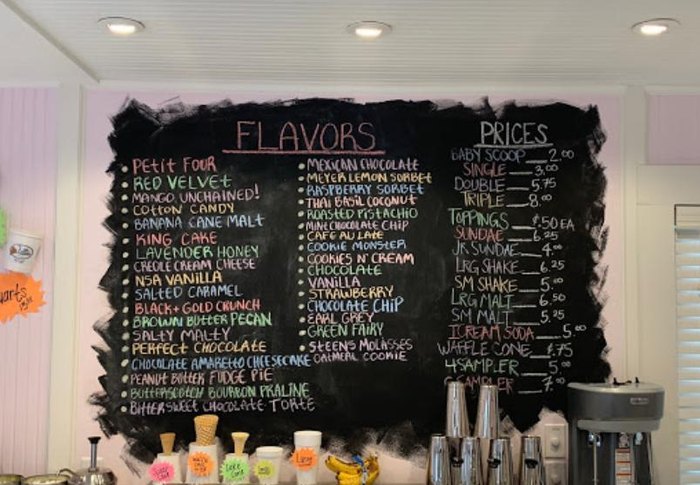 FLAVORS
PETIT FOUR
RED VELVET
MANGO UNCHAINED!
COTTON CANDY
BANANA CANE MALT
KING CAKE
LAVENDER HONEY
CREOLE CREAM CHEESE
NSA VANILLA
SALTED CARAMEL
BLACK+GOLD CRUNCH
BROWN BUTTER PECAN
SALTY MALTY
PERFECT CHOCOLATE
CHOCOLATE AMARETTO CHEESECAKE
PEANUT BUTTER FUDGE PIE
BUTTERSCOTCH BOURBON PRALINE
BITTERSWEET CHOCOLATE TORTE
MEXICAN CHOCOLATE
MEYER LEMON SORBET
RASPBERRY SORBET
THAI BASIL COCONUT
ROASTED PISTACHIO
MINT CHOCOLATE CHIP
CAFE AU LATE
COOKIE MONSTER
COOKIES N' CREAM
CHOCOLATE
VANILLA
STRAWBERRY
CHOCOLATE CHIP
EARL GREY
GREEN FAIRY
STEENS MOLASSES
OATMEAL COOKIE
PRICES
BABY SCOOP 2.00
SINGLE 3.00
DOUBLE 5.75
TRIPLE 8.00
TOPPINGS $.50 EA
SUNDAE 6.25
JR SUNDAE 4.00
LRG SHAKE 6.25
SM SHAKE 5.00
LRG MALT 6.50
SM MALT 5.25
ICREAM SODA 5.00
WAFFLE CONE $.75
4 SAMPLER 5.00
SAMPLER 7.00